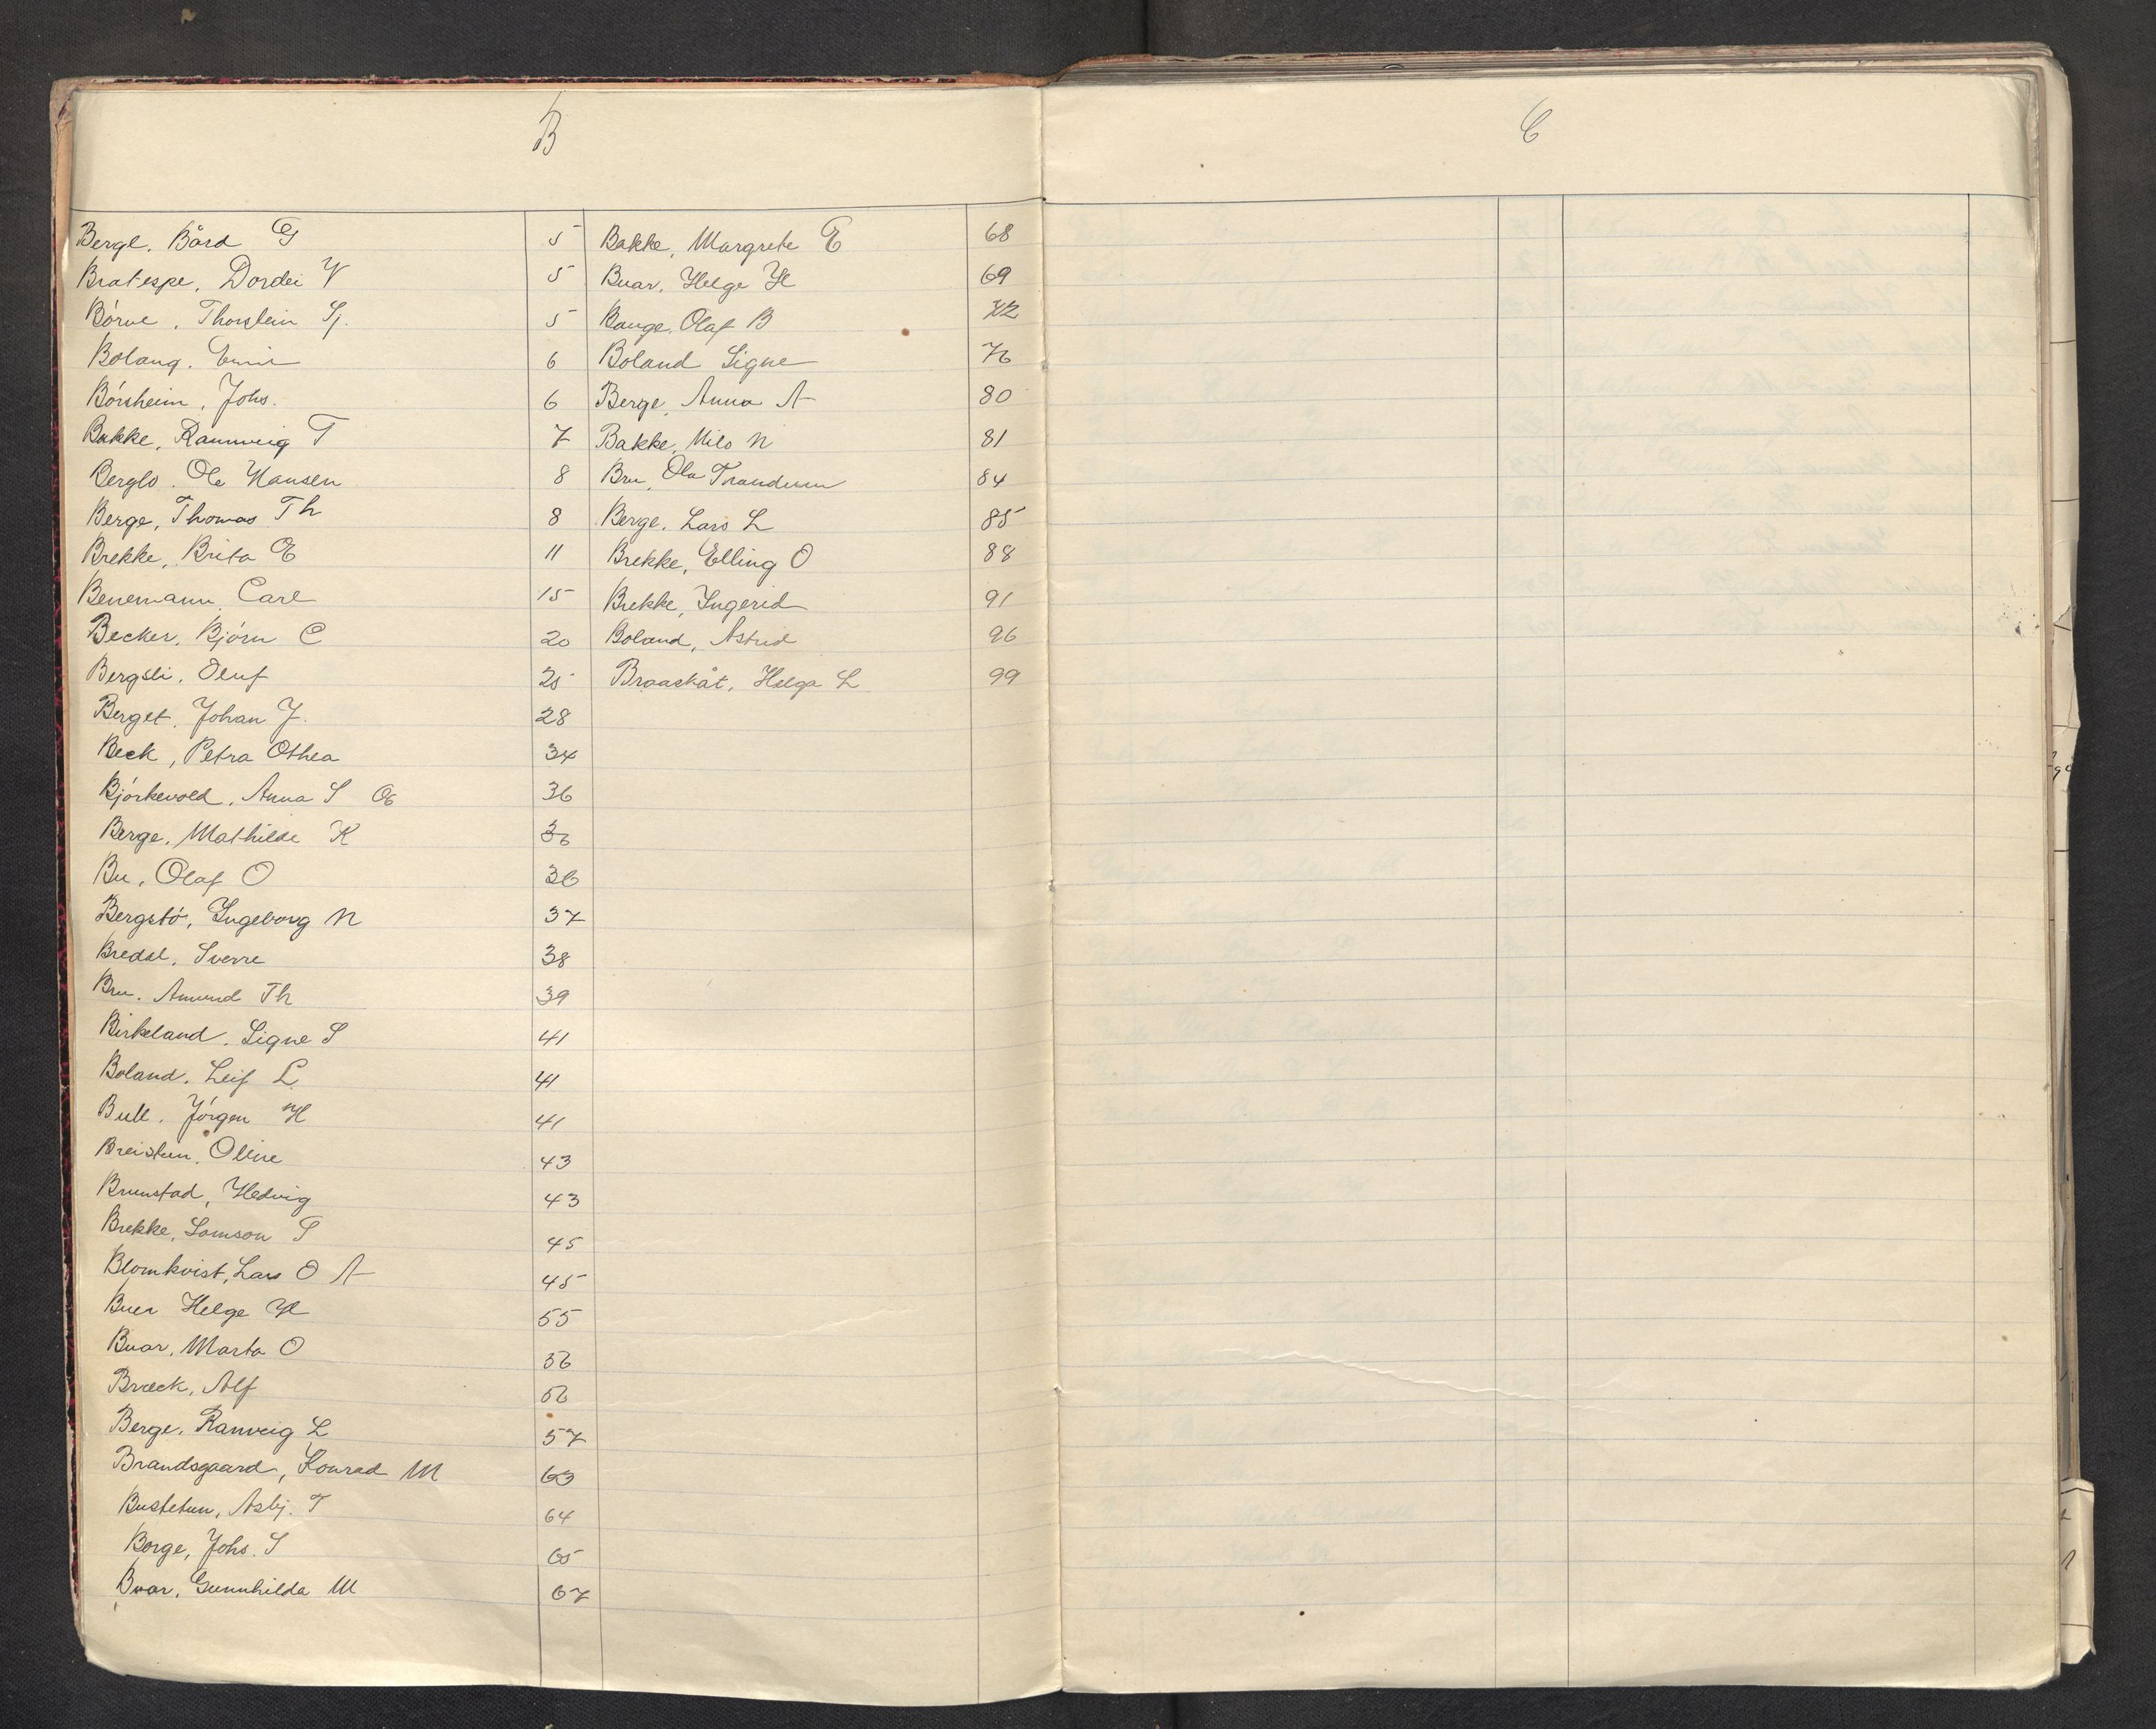 B
Berge, Bård G 5
Bratespe, Dordei V 5
Börve, Thorstein Sj. 5
Bolang, 6
Börsheim, Johs. 6
Bakke, Rannveig T 7
Berglo. Ole Hansen 8
Berge, Thomas Th 8
Brekke, Brita E 11
Benemann, Carl 15
Becker, Björn C 20
Bergsli, Oluf 25
Berget, Johan J. 28
Beck, Petra Othea 34
Björkevold, Anna S 36
Berge, Mathilde K 36
Bu, Olaf O 36
Bergstö, Ingeborg N 37
Bredal, Sverre 38
Bru. Amund Th 39
Birkeland. Signe S 41
Boland, Leif L 41
Bull, Jörgen H 41
Breistun, Oline 43
Brunstad, Hedvig 43
Brekke, Samson S 45
Blomkvist, Lars O A 45
Buer Helge H 55
Buar, Marta O 56
Bræck, Alf 56
Berge, Ranveig L 57
Brandsgaard, Konrad M 63
Bustetun, Asbj. T 64
Borge, Johs. S 65
Buar, Gunnhilda M 67
Bakke, Margrete E 68
Buar, Helge H 69
Bauge, Olaf B 72
Boland Signe 76
Berge, Anna A 80
Bakke, Nils N 81
Bru, Ola 84
Berge, Lars L 85
Brekke, Elling O 88
Brekke, Ingerid 91
Boland, Astrid 96
Braaståt, Helga L 99
C